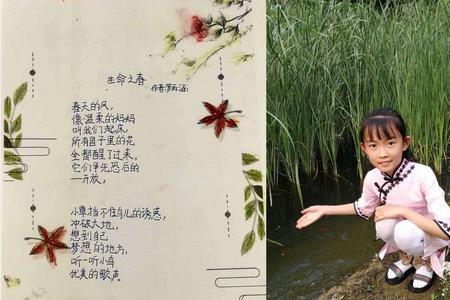 生命之春
作者:罗雨涵
春天的风,
像温柔的妈妈
叫我们起床,
所有园子里的花
全都醒了过来,
它们争先恐后的
一开放。
小草挡不住鸟儿的诱惑,
冲破大地,
想到自己
梦想的地方,
听一听小鸟
优美的歌声。